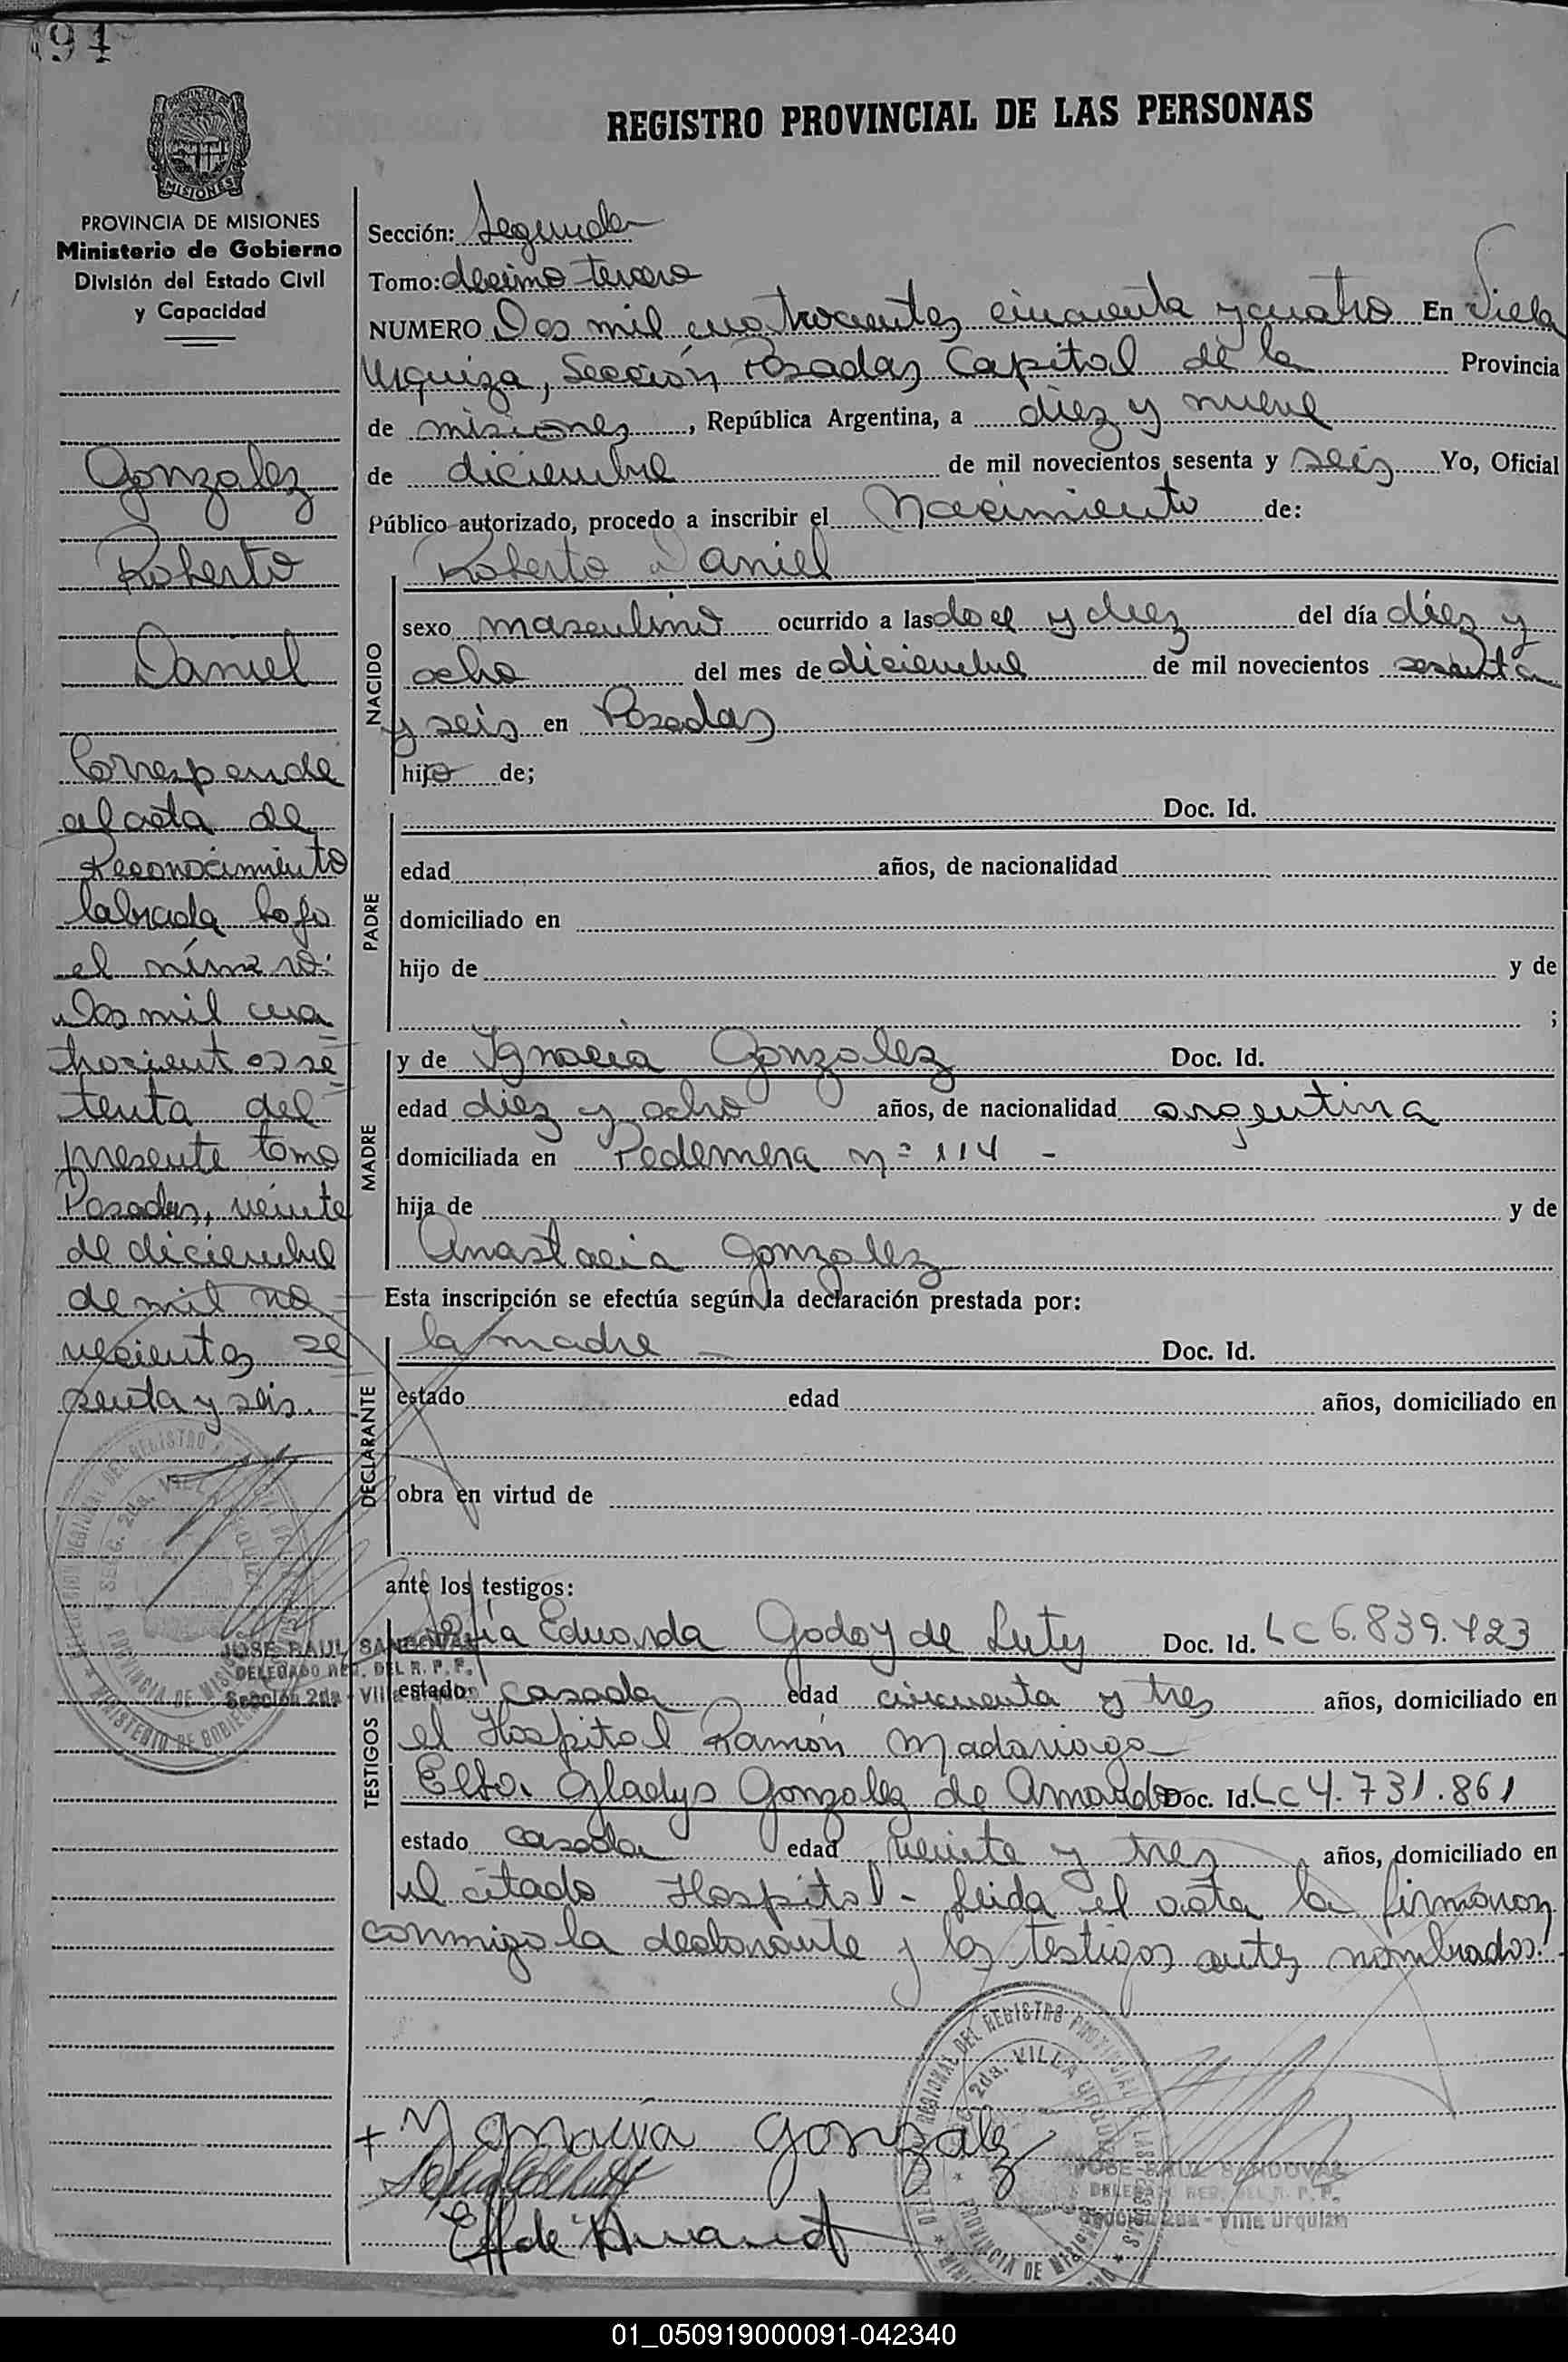 91
REGISTRO PROVINCIAL DE LAS PERSONAS
MISIONES
PROVINCIA DE MISIONES
Ministerio de Gobierno
División del Estado Civil
y Capacidad
Gonzalez
Roberto
Daniel
Corresponde
al acta de
Reconocimiento
labrada bajo
el número:
Dos mil cua
trocientos se
tenta del
presente tomo
Posadas, veinte
de diciembre
de mil no
vecientos se
senta y seis.
JOSE RAUL SANDOVAL
DELEGADO REG. DEL R. P. P.
Sección 2da - Villa Urquiza
Sección: Segunda
Tomo: decimo tercero
NUMERO Dos mil cuatrocientos cincuenta y cuatro En Villa
Urquiza, Sección Posadas Capital de la Provincia
de misiones, República Argentina, a diez y nueve
de diciembre de mil novecientos sesenta y seis Yo, Oficial
Público autorizado, procedo a inscribir el Nacimiento de:
Roberto Daniel
NACIDO
sexo masculino ocurrido a las doce y diez del día diez y
ocho del mes de diciembre de mil novecientos sesenta
y seis en Posadas
hijo de;
PADRE
Doc. Id.
edad años, de nacionalidad
domiciliado en
hijo de y de
;
MADRE
y de Ignacia Gonzalez Doc. Id.
edad diez y ocho años, de nacionalidad argentina
domiciliada en Pedernera nº 114 -
hija de y de
Anastacia Gonzalez
Esta inscripción se efectúa según la declaración prestada por:
DECLARANTE
la madre Doc. Id.
estado edad años, domiciliado en
obra en virtud de
ante los testigos:
TESTIGOS
Eduarda Godoy de Luty Doc. Id. LC 6.839.423
estado casada edad cincuenta y tres años, domiciliado en
el Hospital Ramón Madariaga
Elba Gladys Gonzalez de Amando Doc. Id. LC 4.731.861
estado casada edad veinte y tres años, domiciliado en
el citado Hospital - leida el acta la firmaron
conmigo la declarante y los testigos antes nombrados.-
+ Ygnacia gonzalez
JOSE RAUL SANDOVAL
DELEGADO REG. DEL R. P. P.
Sección 2da - Villa Urquiza
01_050919000091-042340